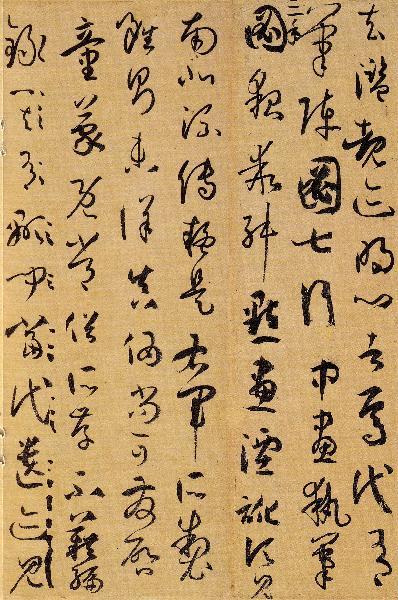 去濫覩迹明心者焉代有
筆陣圖七行中畫執筆
三手
圖貌乖舛點畫湮訛頃見
南北流傳疑是右軍所製
雖則未詳真偽尚可發啓
童蒙既常俗所存不藉編
錄代遺迹見